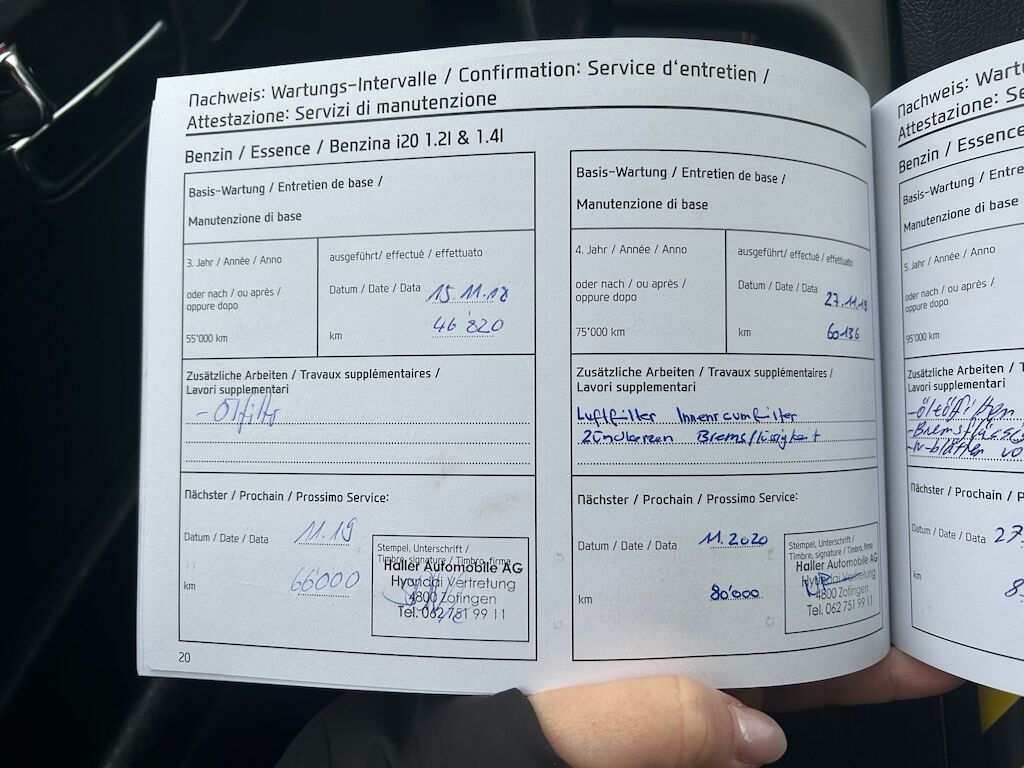 Nachweis: Wartungs-Intervalle / Confirmation: Service d'entretien /
Attestazione: Servizi di manutenzione
Benzin / Essence / Benzina i20 1.2l & 1.4l
Basis-Wartung / Entretien de base /
Manutenzione di base
3. Jahr / Année / Anno
oder nach / ou après /
oppure dopo
55'000 km
ausgeführt/ effectué / effettuato
Datum / Date / Data 15.11.18
km 46'820
Zusätzliche Arbeiten / Travaux supplémentaires /
Lavori supplementari
- Ölfilter
Nächster / Prochain / Prossimo Service:
Datum / Date / Data 11.19
km 66'000
Stempel, Unterschrift /
Timbre, signature / Timbro, firma
Haller Automobile AG
Hyundai Vertretung
4800 Zofingen
Tel. 062 751 99 11
20
Basis-Wartung / Entretien de base /
Manutenzione di base
4. Jahr / Année / Anno
oder nach / ou après /
oppure dopo
75'000 km
ausgeführt/ effectué / effettuato
Datum / Date / Data 27.11.19
km 60136
Zusätzliche Arbeiten / Travaux supplémentaires /
Lavori supplementari
Luftfilter Innenraumfilter
Zündkerzen Bremsflüssigkeit
Nächster / Prochain / Prossimo Service:
Datum / Date / Data 11.2020
km 80'000
Stempel, Unterschrift /
Timbre, signature / Timbro, firma
Haller Automobile AG
Hyundai Vertretung
4800 Zofingen
Tel. 062 751 99 11
Nachweis: Wart
Attestazione: Se
Benzin / Essence
Basis-Wartung / Entre
Manutenzione di base
5. Jahr / Année / Anno
oder nach / ou après /
oppure dopo
95'000 km
Zusätzliche Arbeiten / T
Lavori supplementari
Nächster / Prochain / P
Datum / Date / Data 27.
km 8